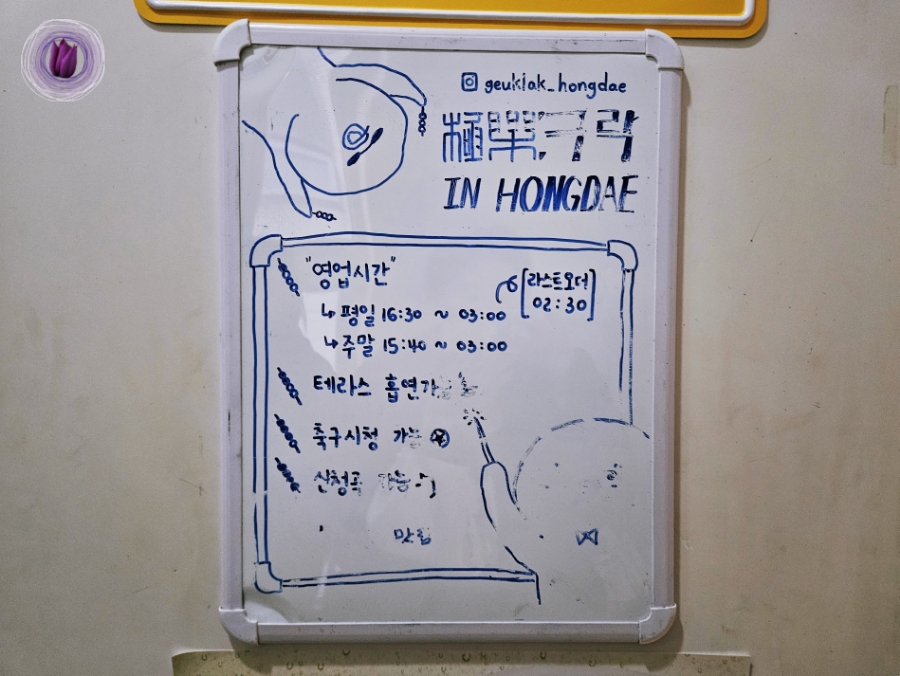 geuklak_hongdae
極楽 극락
IN HONGDAE
"영업시간"
↳ 평일 16:30 ~ 03:00
[라스트오더
02:30]
↳ 주말 15:40 ~ 03:00
테라스 흡연가능
축구시청 가능
신청곡 가능♪
맛집